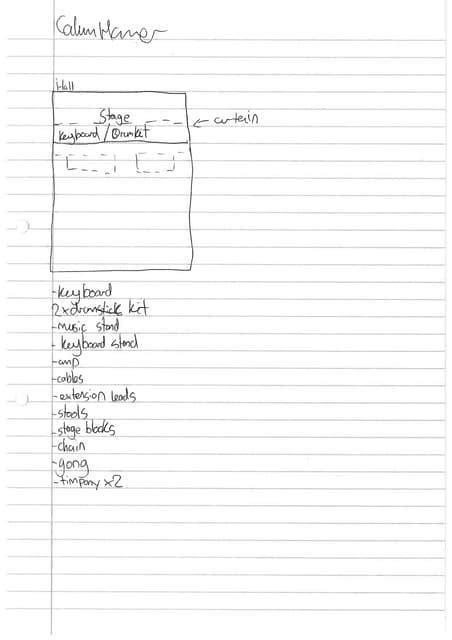 Calum
Hall
Stage
← curtain
Keyboard / Drumkit
-keyboard
2xdrumstick kit
-music stand
- keyboard stand
-amp
-cables
-extension leads
-stools
-stage blocks
-chain
-gong
-timpany x2